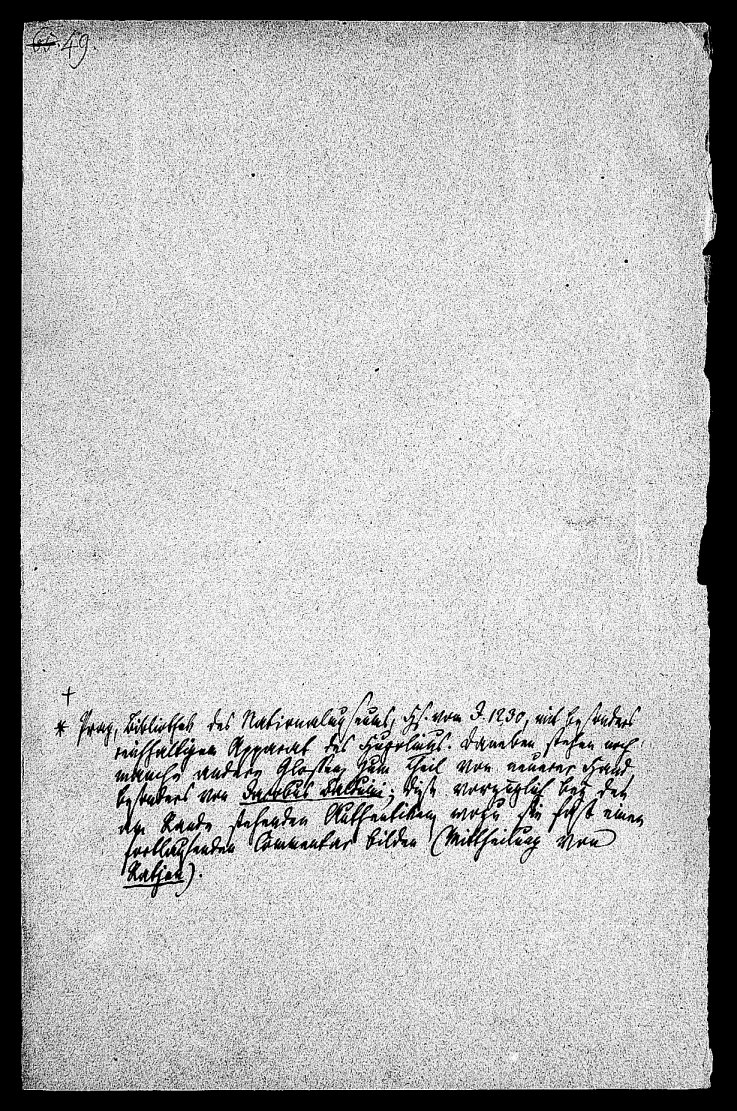 49.
†
* Prag, Bibliothek des Nationalmuseums, Hs. vom J. 1230, mit besonders
reichhaltigem Apparat des Hugolinus. Daneben stehen noch
manche andere Glossen, zum Theil von neuerer Hand,
besonders von Jacobus Balduini; diese vorzüglich bey den
am Rande stehenden Authentiken, wozu sie fast einen
fortlaufenden Commentar bilden (Mittheilung von
Ratjen).